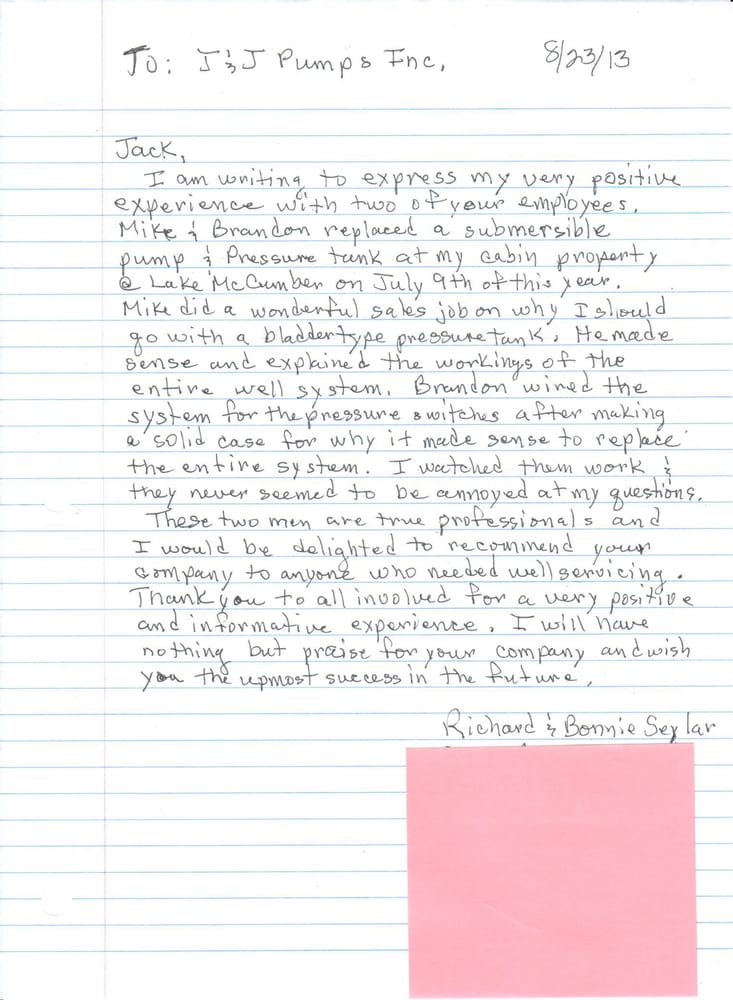 To: J & J Pumps Inc. 8/23/13
Jack,
I am writing to express my very positive
experience with two of your employees.
Mike & Brandon replaced a submersible
pump & Pressure tank at my cabin property
@ Lake McCumber on July 9th of this year.
Mike did a wonderful sales job on why I should
go with a bladder type pressure tank. He made
sense and explained the workings of the
entire well system. Brandon wired the
system for the pressure switches after making
a solid case for why it made sense to replace
the entire system. I watched them work &
they never seemed to be annoyed at my questions.
These two men are true professionals and
I would be delighted to recommend your
company to anyone who needed well servicing.
Thank you to all involved for a very positive
and informative experience. I will have
nothing but praise for your company and wish
you the upmost success in the future.
Richard & Bonnie Seylar